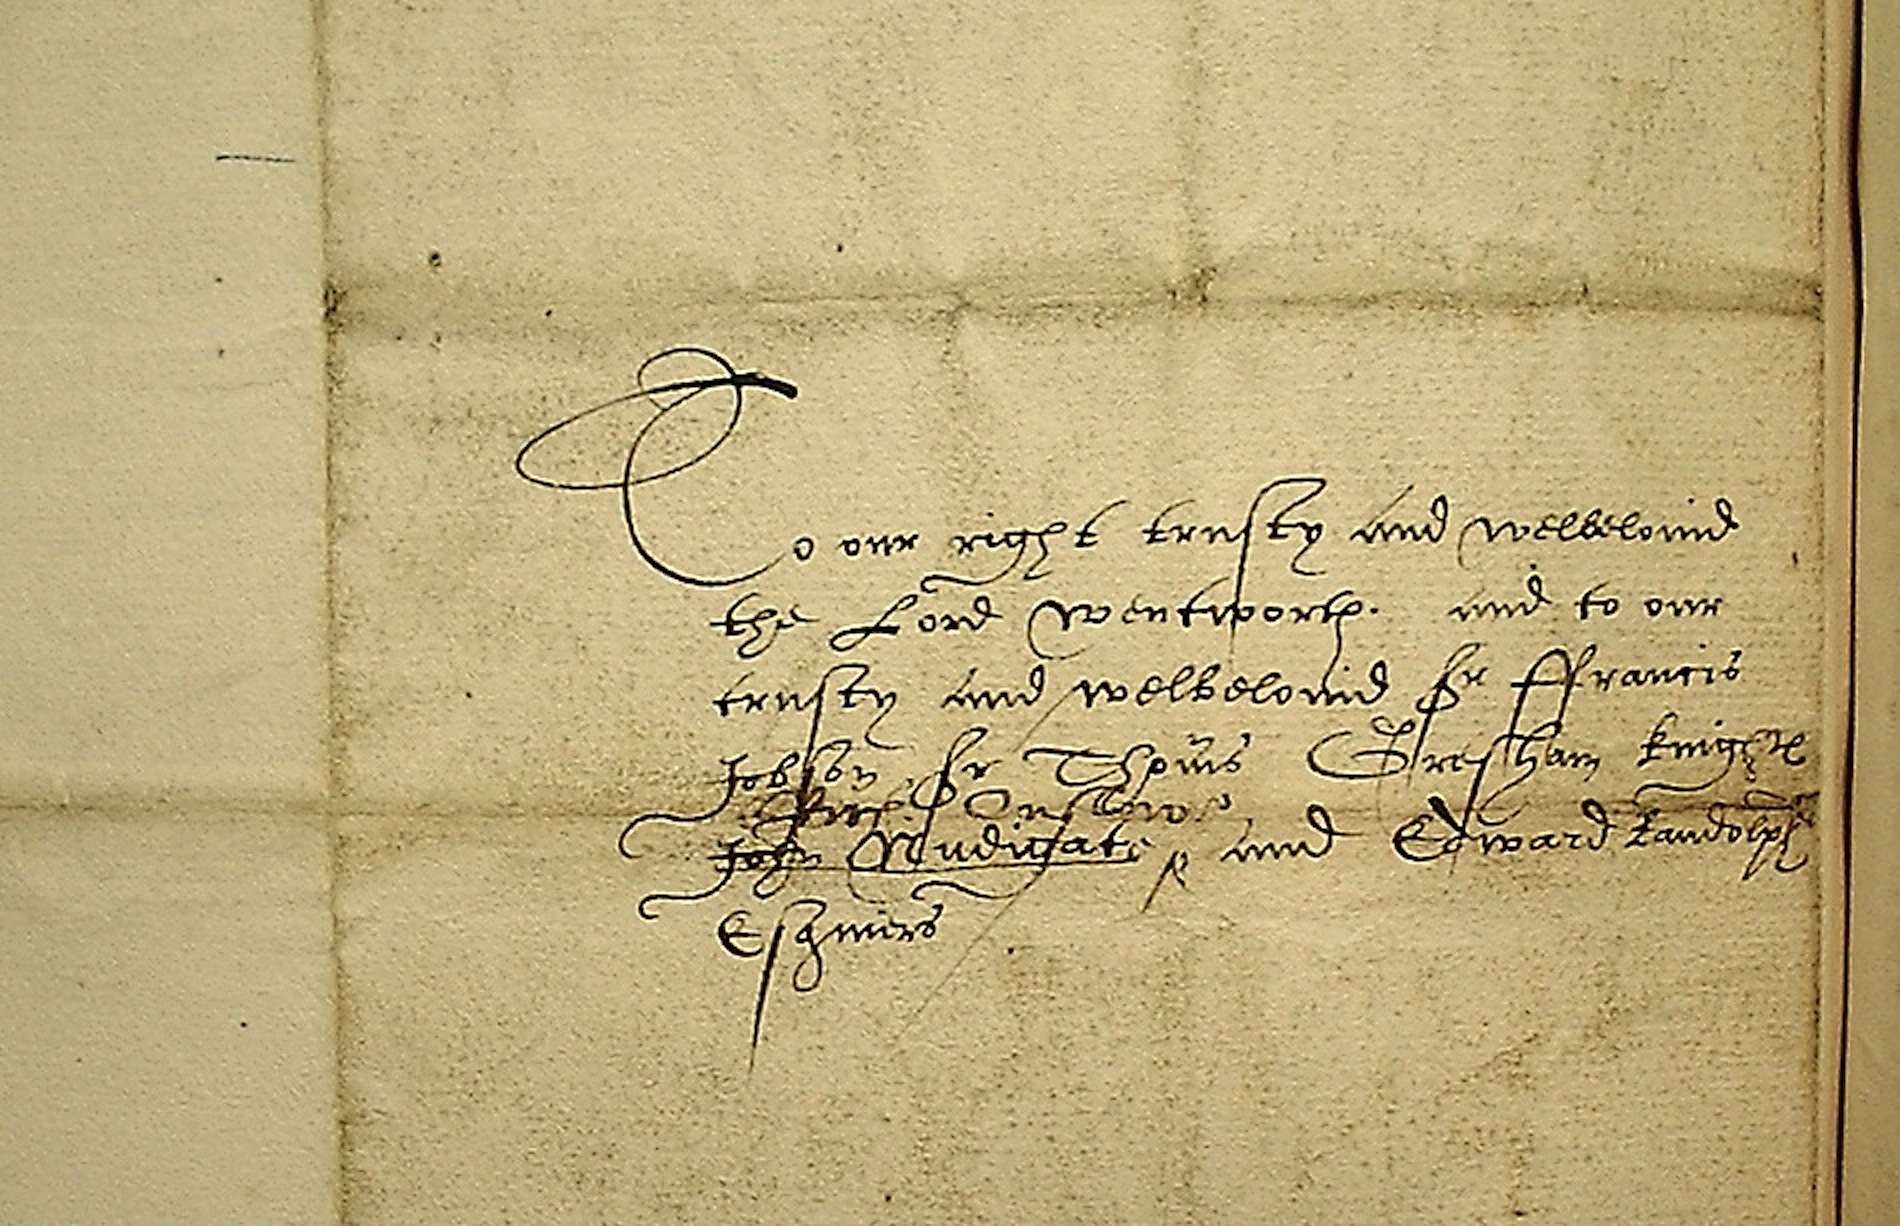 To our right trusty and welbelouid
the Lord Wentworth. and to our
trusty and welbelouid Sr ffrancis
Jobson, Sr Thom̃s Gresham knightẹ
Rich. Onslowe
John Nudigate, and Edward Randolph
Esquiers